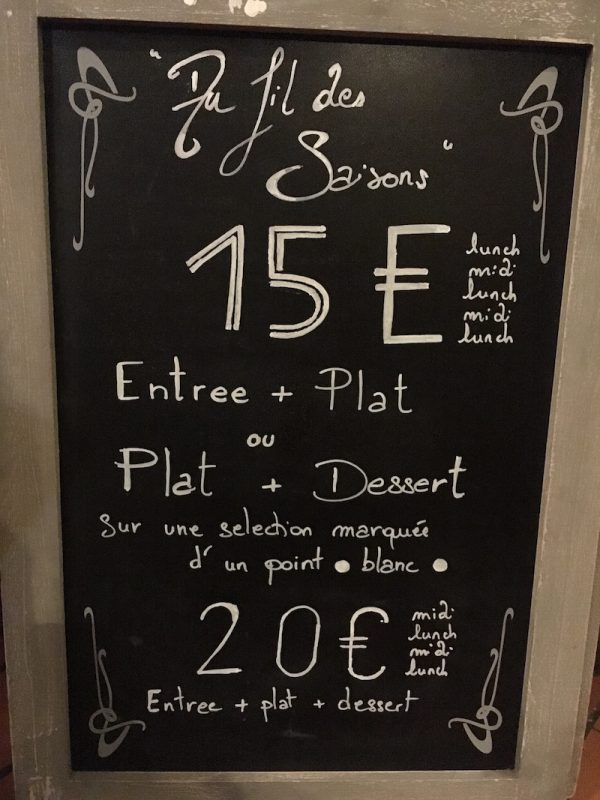 "Au fil des
Saisons"
15 €
lunch
midi
lunch
midi
lunch
Entree + Plat
ou
Plat + Dessert
Sur une selection marquée
d'un point • blanc •
20€
midi
lunch
midi
lunch
Entree + plat + dessert